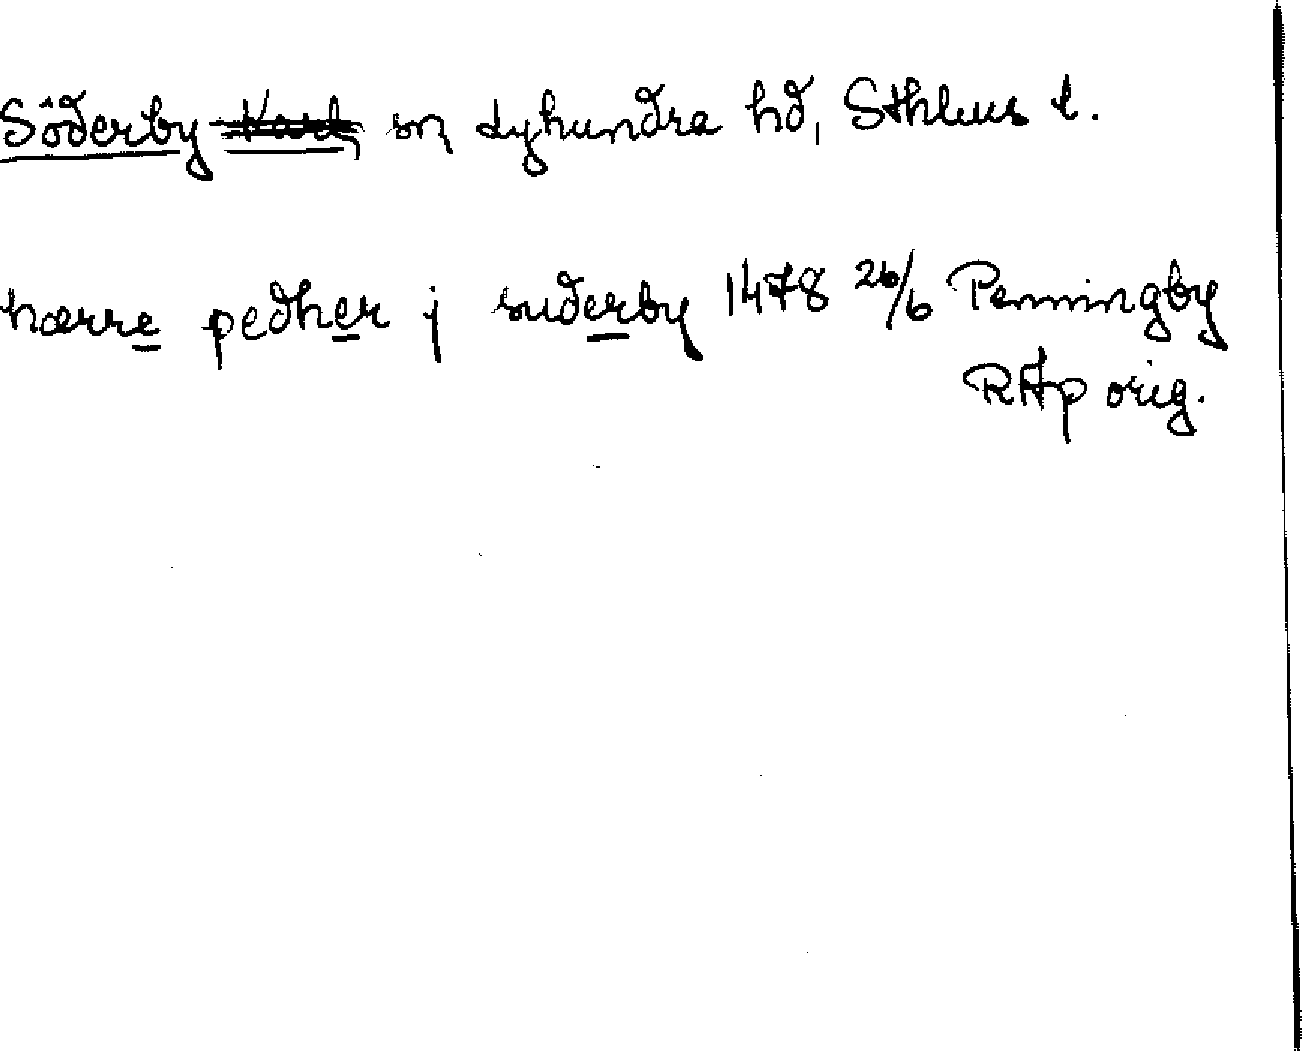 Söderby sn Lyhundra hd, Sthlms l.
hærre pedher j suderby 1478 26/6 Penningby
RAp orig.